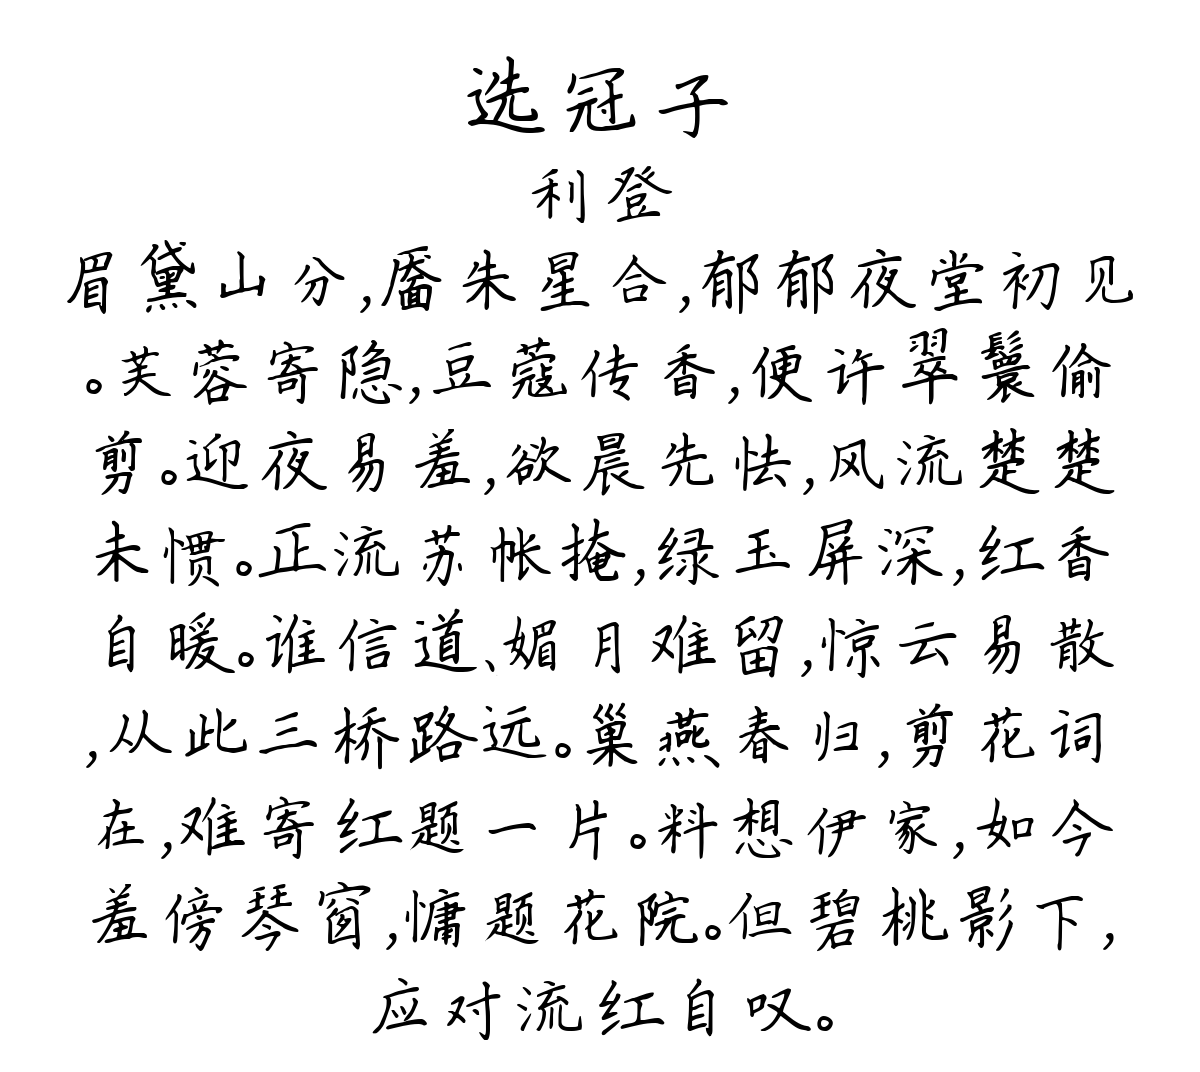 选冠子
利登
眉黛山分,靥朱星合,郁郁夜堂初见
。芙蓉寄隐,豆蔻传香,便许翠鬟偷
剪。迎夜易羞,欲晨先怯,风流楚楚
未惯。正流苏帐掩,绿玉屏深,红香
自暖。谁信道、媚月难留,惊云易散
,从此三桥路远。巢燕春归,剪花词
在,难寄红题一片。料想伊家,如今
羞傍琴窗,慵题花院。但碧桃影下,
应对流红自叹。